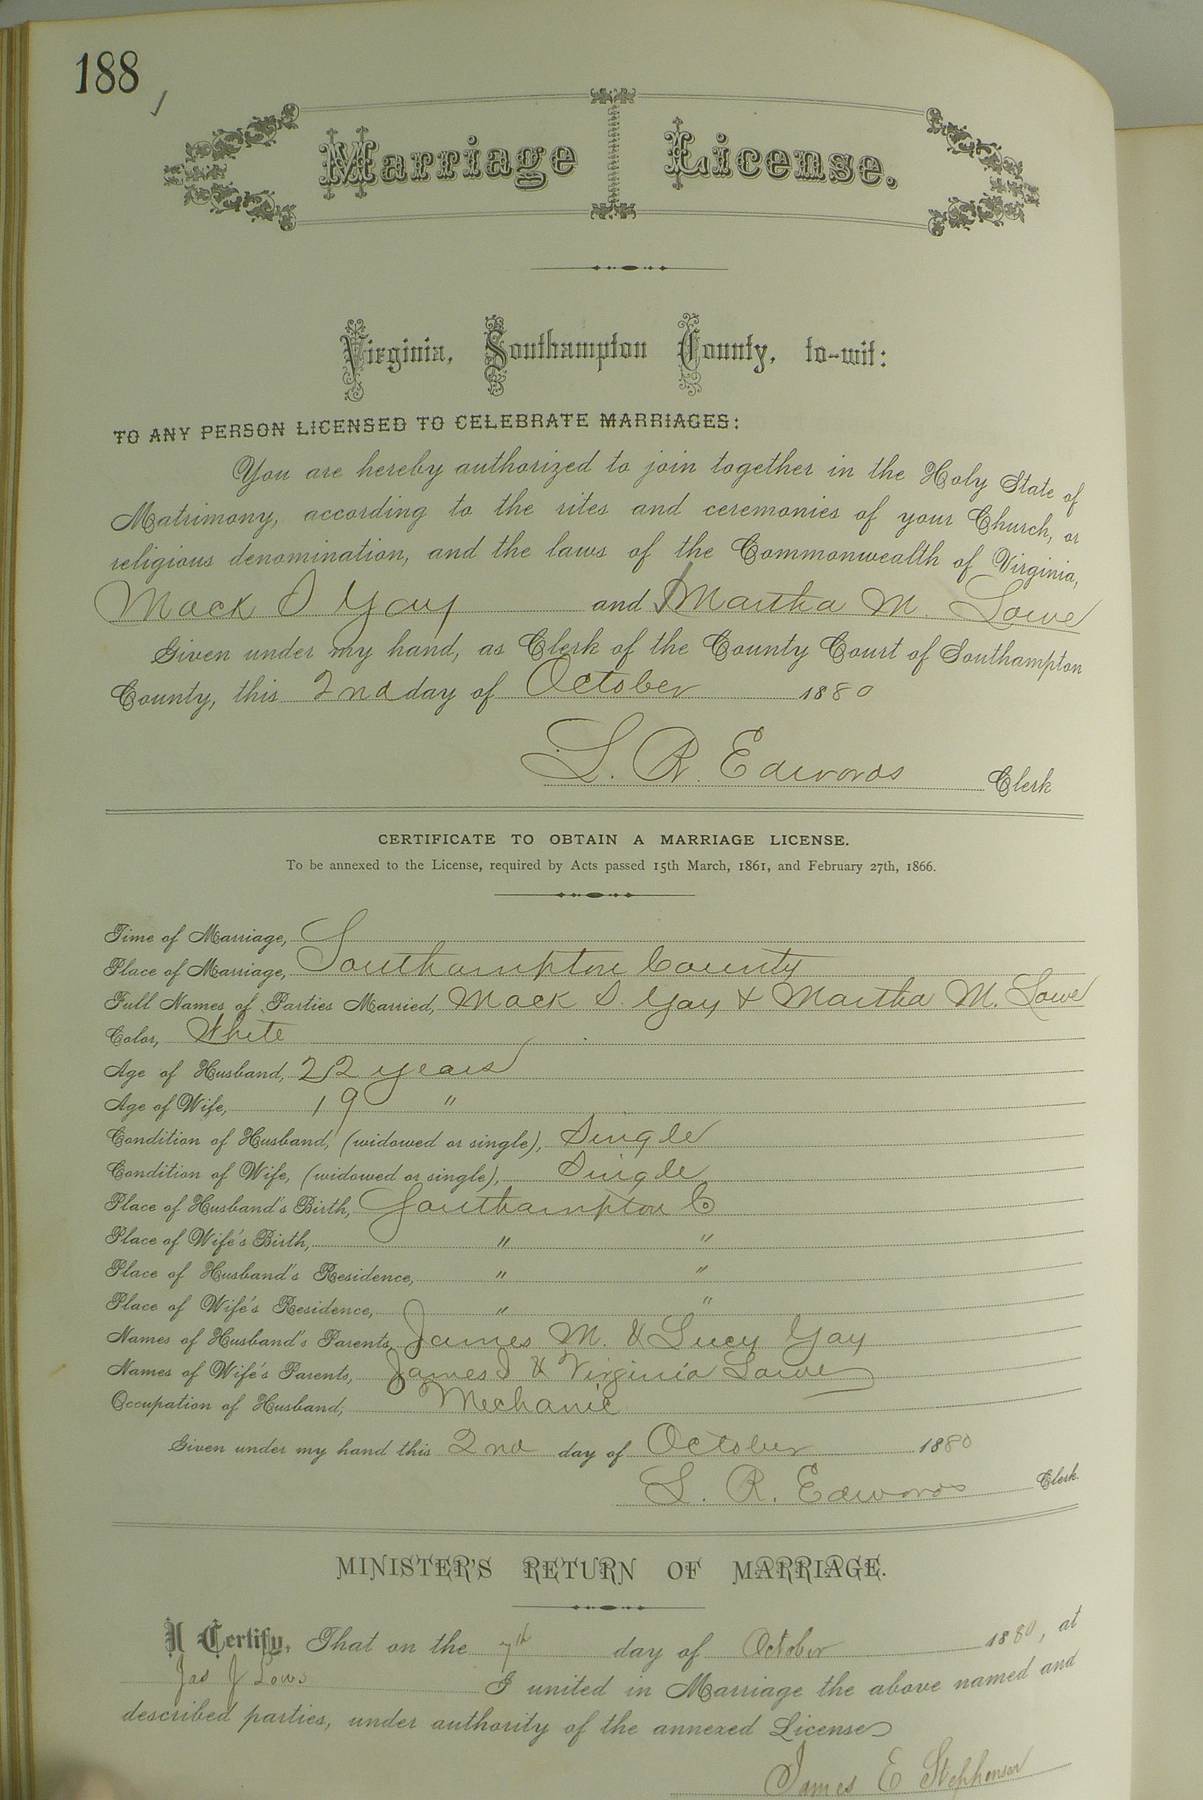 188
Marriage License.
Virginia, Southampton County, to-wit:
TO ANY PERSON LICENSED TO CELEBRATE MARRIAGES:
You are hereby authorized to join together in the Holy State of
Matrimony, according to the rites and ceremonies of your Church, or
religious denomination, and the laws of the Commonwealth of Virginia,
Mack S Gay and Martha M. Lowe
Given under my hand, as Clerk of the County Court of Southampton
County, this 2nd day of October 1880
L. R. Edwards Clerk
CERTIFICATE TO OBTAIN A MARRIAGE LICENSE.
To be annexed to the License, required by Acts passed 15th March, 1861, and February 27th, 1866.
Time of Marriage,
Place of Marriage, Southampton County
Full Names of Parties Married, Mack S. Gay & Martha M. Lowe
Color, White
Age of Husband, 22 years
Age of Wife, 19 "
Condition of Husband, (widowed or single), Single
Condition of Wife, (widowed or single), Single
Place of Husband's Birth, Southampton Co
Place of Wife's Birth, " "
Place of Husband's Residence, " "
Place of Wife's Residence, " "
Names of Husband's Parents James M. & Lucy Gay
Names of Wife's Parents, James J & Virginia Lowe
Occupation of Husband, Mechanic
Given under my hand this 2nd day of October 1880
L. R. Edwards Clerk.
MINISTER'S RETURN OF MARRIAGE.
I Certify, That on the 7th day of October 1880, at
Jas J Lows I united in Marriage the above named and
described parties, under authority of the annexed License
James E Stephenson